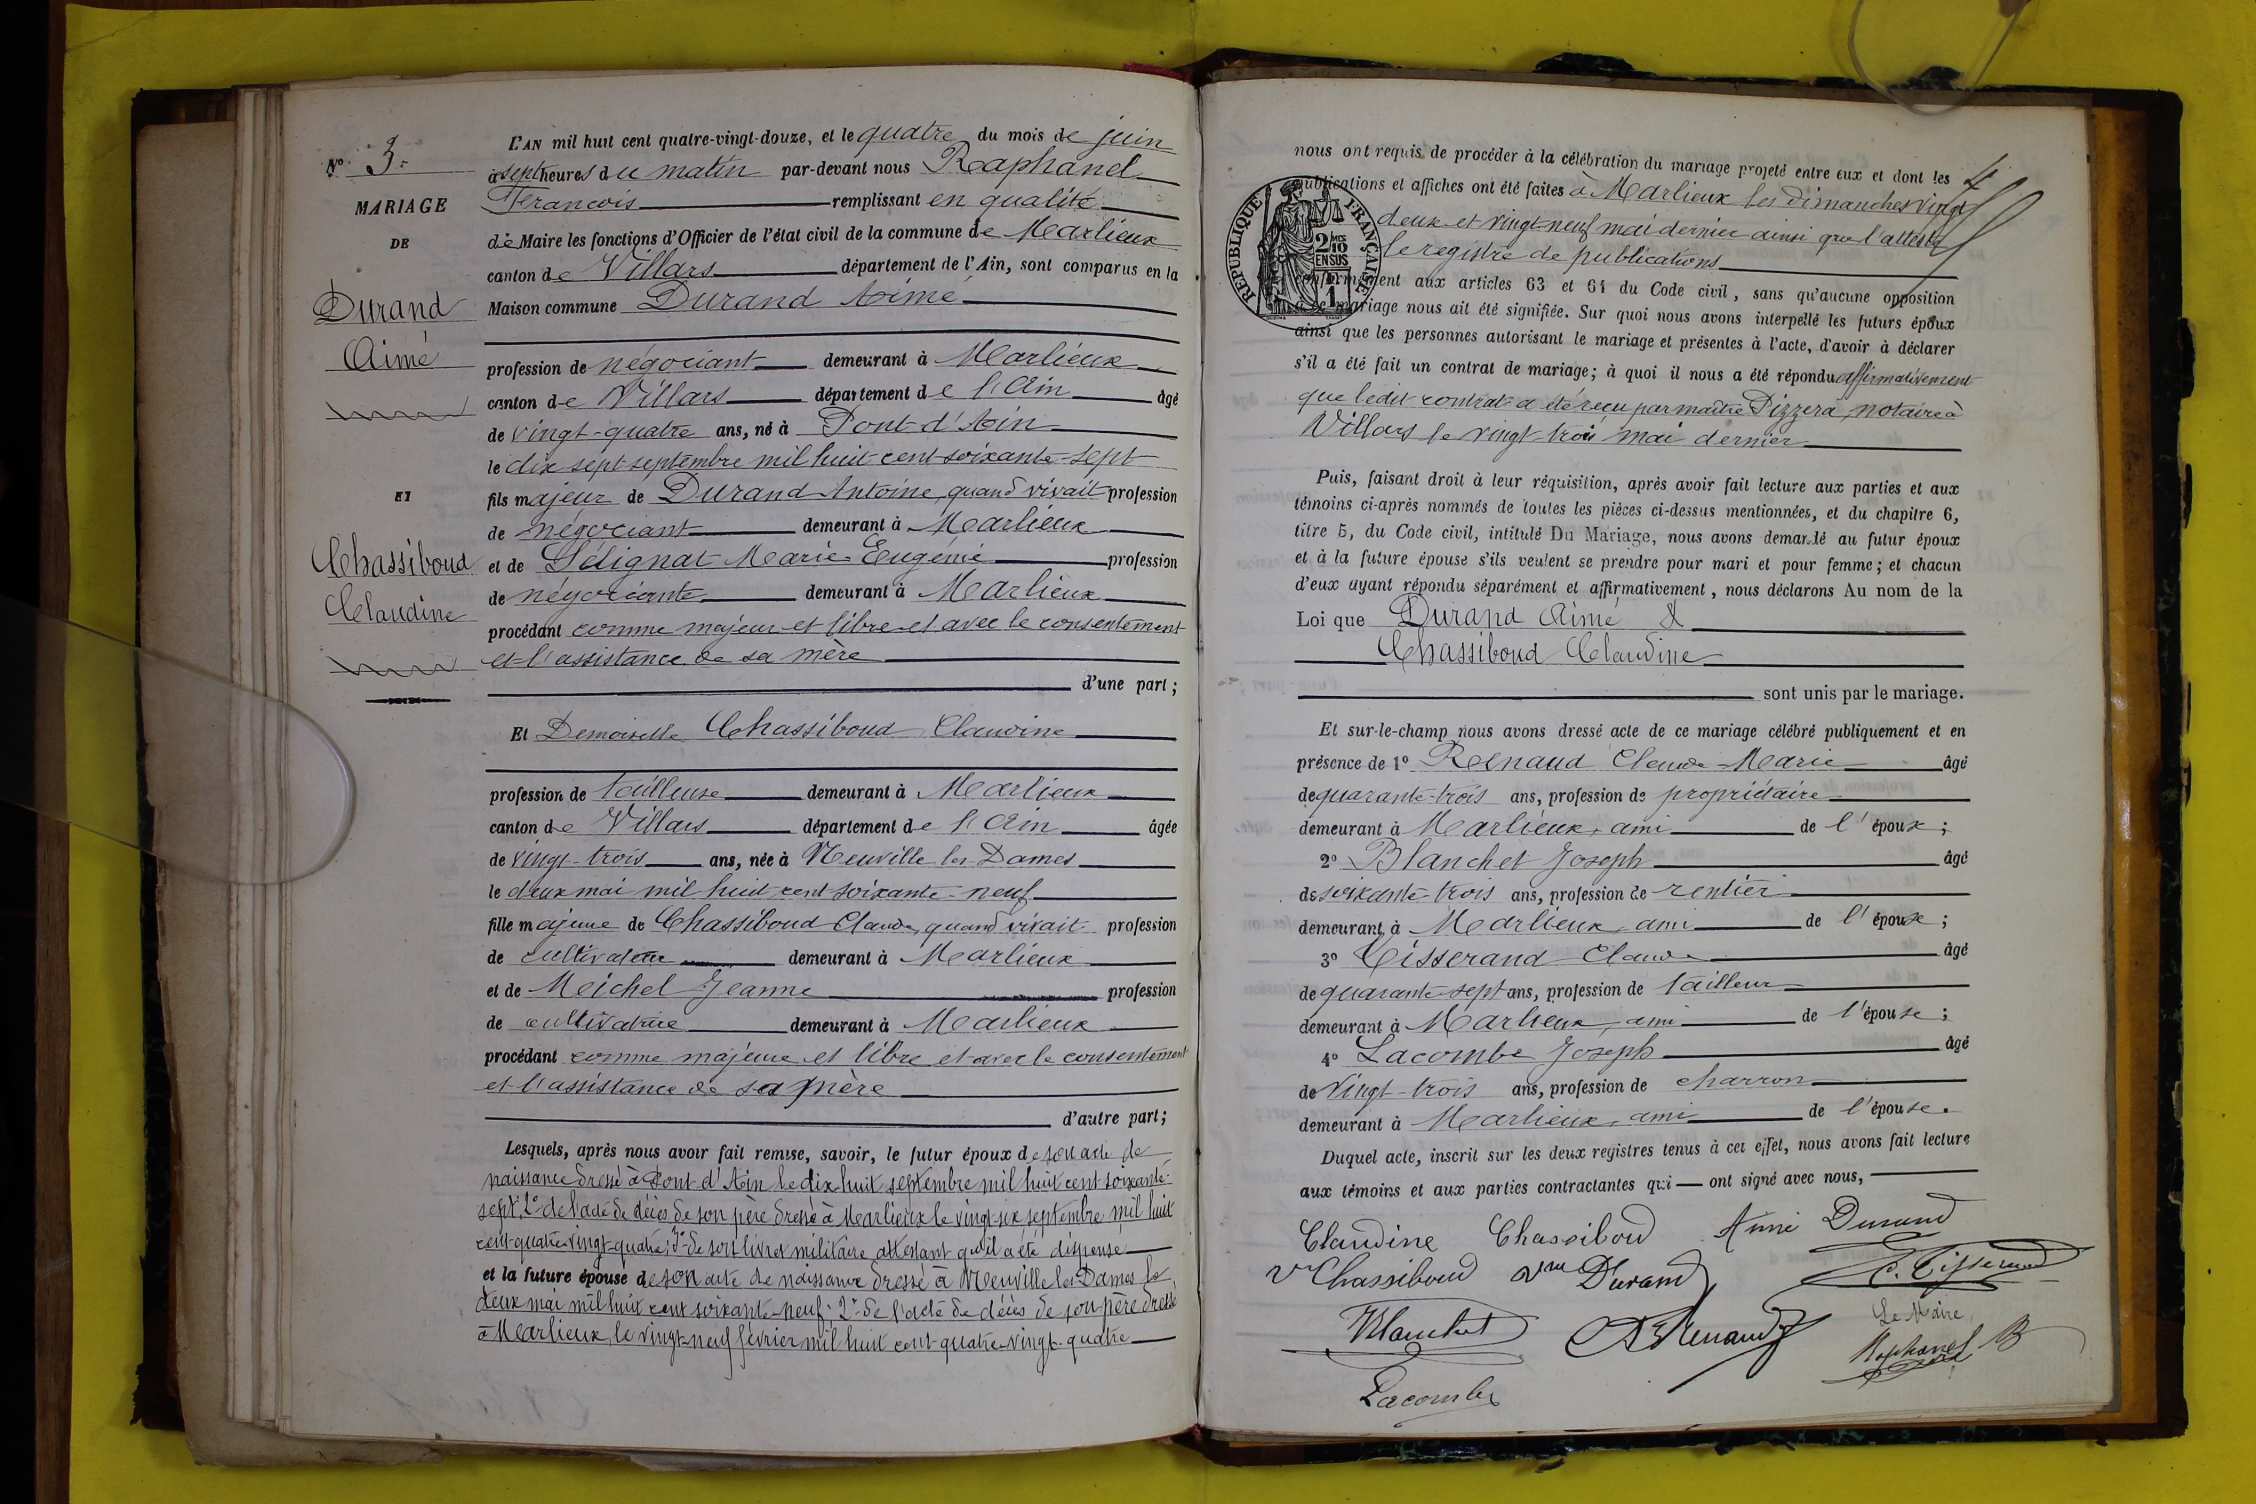 N° 3.
MARIAGE
DE
Durand
Aimé
ET
Chassiboud
Claudine
L'AN mil huit cent quatre-vingt-douze, et le quatre du mois de juin
à sept heures du matin par-devant nous Raphanel
Francois remplissant en qualité
de Maire les fonctions d'Officier de l'état civil de la commune de Marlieux
canton de Villars département de l'Ain, sont comparus en la
Maison commune Durand Aimé
profession de négociant demeurant à Marlieux
canton de Villars département de l'Ain âgé
de vingt-quatre ans, né à Pont-d'Ain
le dix sept septembre mil huit cent soixante-sept
fils majeur de Durand Antoine, quand vivait profession
de négociant demeurant à Marlieux
et de Sélignat Marie Eugénie profession
de négociante demeurant à Marlieux
procédant comme majeur et libre et avec le consentement
et l'assistance de sa mère
d'une part;
Et Demoiselle Chassiboud Claudine
profession de tailleuse demeurant à Marlieux
canton de Villars département de l'Ain âgée
de vingt-trois ans, née à Neuville les Dames
le deux mai mil huit cent soixante-neuf
fille majeure de Chassiboud Claude, quand vivait profession
de cultivateur demeurant à Marlieux
et de Michel Jeanne profession
de cultivatrice demeurant à Marlieux
procédant comme majeure et libre et avec le consentement
et l'assistance de sa mère
d'autre part;
Lesquels, après nous avoir fait remise, savoir, le futur époux de son acte de
naissance dressé à Pont-d'Ain le dix-huit septembre mil huit cent soixante-
sept; 2° de l'acte de décès de son père dressé à Marlieux le vingt-six septembre mil huit
cent-quatre-vingt-quatre; 3° de son livret militaire attestant qu'il a été dispensé
et la future épouse de son acte de naissance dressé à Neuville les Dames le
deux mai mil huit cent soixante-neuf; 2° de l'acte de décès de son père dressé
à Marlieux, le vingt-neuf février mil huit cent-quatre-vingt-quatre
nous ont requis de procéder à la célébration du mariage projeté entre eux et dont les
publications et affiches ont été faites à Marlieux les dimanches vingt
deux et vingt-neuf mai dernier ainsi que l'atteste
le registre de publications
RÉPUBLIQUE FRANÇAISE
2/10
EN SUS
1
conformément aux articles 63 et 64 du Code civil, sans qu'aucune opposition
à ce mariage nous ait été signifiée. Sur quoi nous avons interpellé les futurs époux
ainsi que les personnes autorisant le mariage et présentes à l'acte, d'avoir à déclarer
s'il a été fait un contrat de mariage; à quoi il nous a été répondu affirmativement
que ledit contrat a été reçu par maître Pizzera, notaire à
Villars le vingt-trois mai dernier
Puis, faisant droit à leur réquisition, après avoir fait lecture aux parties et aux
témoins ci-après nommés de toutes les pièces ci-dessus mentionnées, et du chapitre 6,
titre 5, du Code civil, intitulé Du Mariage, nous avons demandé au futur époux
et à la future épouse s'ils veulent se prendre pour mari et pour femme; et chacun
d'eux ayant répondu séparément et affirmativement, nous déclarons Au nom de la
Loi que Durand Aimé &
Chassiboud Claudine
sont unis par le mariage.
Et sur-le-champ nous avons dressé acte de ce mariage célébré publiquement et en
présence de 1° Renaud Claude-Marie âgé
de quarante-trois ans, profession de propriétaire
demeurant à Marlieux, ami de l'époux;
2° Blanchet Joseph âgé
de soixante-trois ans, profession de rentier
demeurant à Marlieux, ami de l'époux;
3° Tisserand Claude âgé
de quarante-sept ans, profession de tailleur
demeurant à Marlieux, ami de l'épouse;
4° Lacombe Joseph âgé
de vingt-trois ans, profession de charron
demeurant à Marlieux, ami de l'épouse.
Duquel acte, inscrit sur les deux registres tenus à cet effet, nous avons fait lecture
aux témoins et aux parties contractantes qui ont signé avec nous,
Claudine Chassiboud Aimé Durand
Ve Chassiboud Vve Durand C. Tisserand
Blanchet Renaud Le Maire,
Raphanel
Lacombe